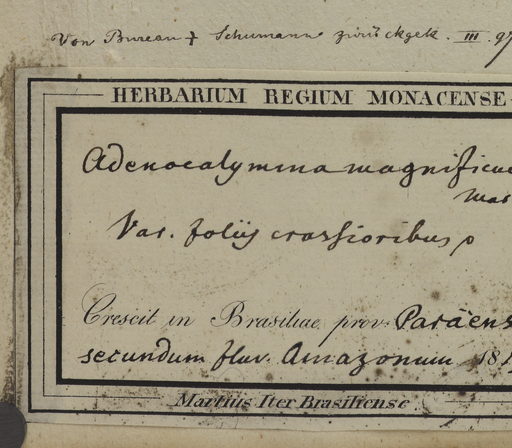 Von Bureau + Schumann zurückgek. III. 97
HERBARIUM REGIUM MONACENSE
Adenocalymma magnificum
Mar
Var. foliis crassioribus
Crescit in Brasiliae prov. Paraens
secundum fluv. Amazonum 181
Martius Iter Brasiliense.